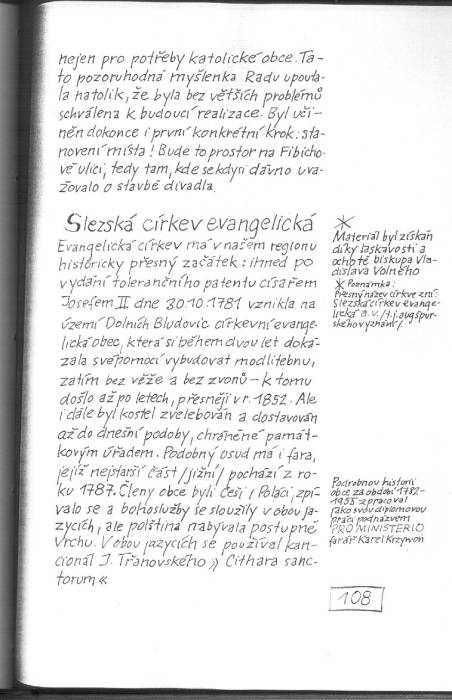 nejen pro potřeby katolické obce. Ta-
to pozoruhodná myšlenka Radu upouta-
la natolik, že byla bez větších problémů
schválena k budoucí realizace. Byl uči-
něn dokonce i první konkrétní krok: sta-
novení místa! Bude to prostor na Fibicho-
vě ulici, tedy tam, kde se kdysi dávno uva-
žovalo o stavbě divadla.
Slezská církev evangelická
Evangelická církev má v našem regionu
historicky přesný začátek: ihned po
vydání tolerančního patentu císařem
Josefem II dne 30.10.1781 vznikla na
území Dolních Bludovic církevní evange-
lická obec, která si během dvou let doká-
zala svépomocí vybudovat modlitebnu,
zatím bez věže a bez zvonů – k tomu
došlo až po letech, přesněji v r. 1852. Ale
i dále byl kostel zvelebován a dostavován
až do dnešní podoby, chráněné památ-
kovým úřadem. Podobný osud má i fara,
jejíž nejstarší část /jižní/ pochází z ro-
ku 1787. Členy obce byli Češi i Poláci, zpí-
valo se a bohoslužby se sloužily v obou ja-
zycích, ale polština nabývala postupně
vrchu. V obou jazycích se používal kan-
cionál J. Třanovského » Cithara sanc-
torum «
* Materiál byl získán
díky laskavosti a
ochotě biskupa Vla-
dislava Volného
* Poznámka:
Přesný název církve zní:
Slezská církev evange-
lická a.v. /t.j. augšpur-
ského vyznání/
Podrobnou historii
obce za období 1782-
1955 zpracoval
jako svou diplomovou
práci pod názvem
PRO MINISTERIO
farář Karel Krzywoń
108